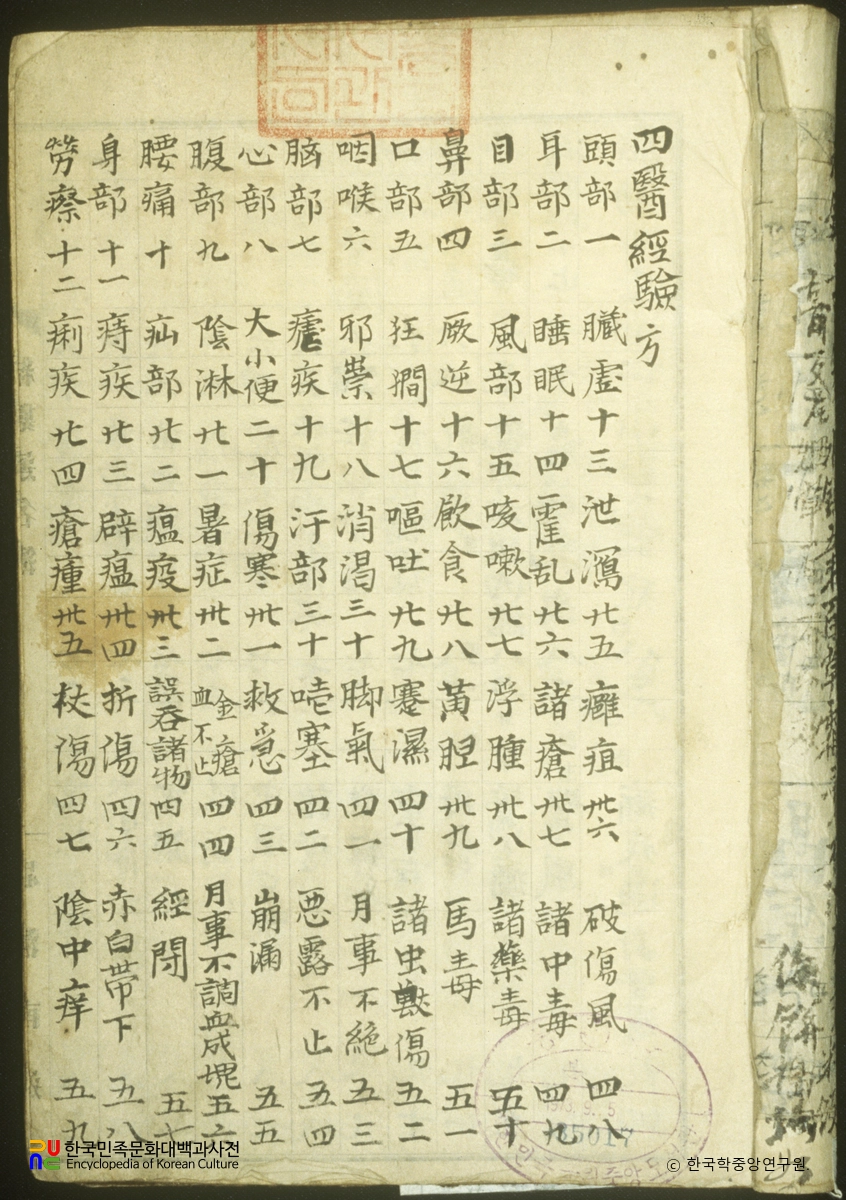 四醫經驗方
頭部一 臟虛十三 泄瀉廿五 癰疽卅六 破傷風四八
耳部二 睡眠十四 霍乱廿六 諸瘡卅七 諸中毒四九
目部三 風部十五 咳嗽廿七 浮腫卅八 諸藥毒五十
鼻部四 厥逆十六 飮食廿八 黃胆卅九 馬毒五一
口部五 狂癇十七 嘔吐廿九 蹇濕四十 諸虫獸傷五二
咽喉六 邪祟十八 消渴三十 脚氣四一 月事不絶五三
脑部七 瘧疾十九 汗部三十 噎塞四二 惡露不止五四
心部八 大小便二十 傷寒卅一 救急四三 崩漏五五
腹部九 陰淋廿一 暑症卅二 金瘡血不止四四 月事不調血成塊五六
腰痛十 疝部廿二 瘟疫卅三 誤呑諸物四五 經閉五七
身部十一 痔疾廿三 辟瘟卅四 折傷四六 赤白帶下五八
勞瘵十二 痢疾廿四 瘡瘇卅五 杖傷四七 陰中痒五九
한국민족문화대백과사전
Encyclopedia of Korean Culture
© 한국학중앙연구원